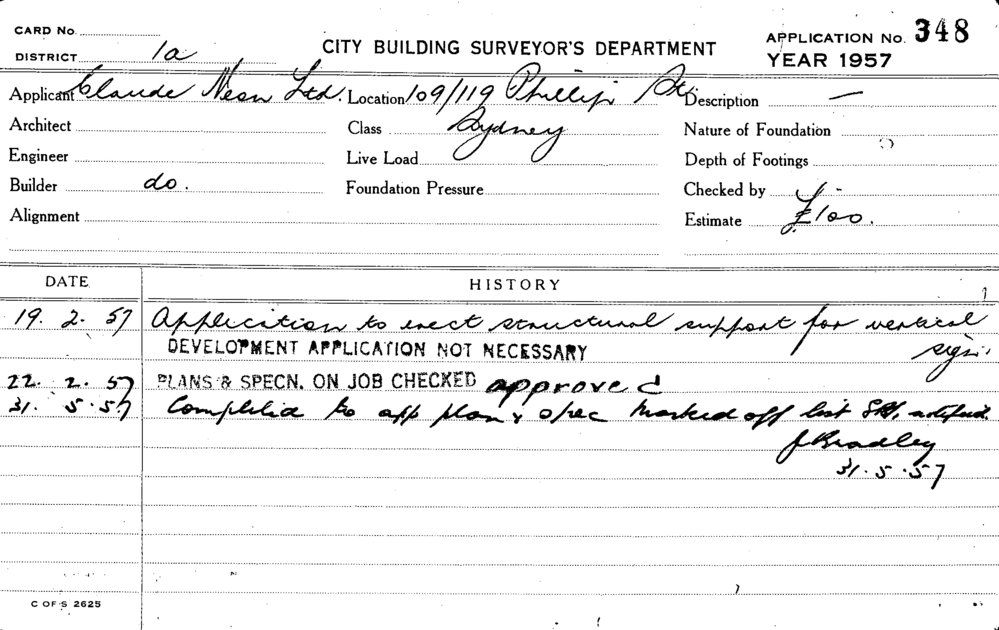 CARD No.
DISTRICT 1a
CITY BUILDING SURVEYOR'S DEPARTMENT
APPLICATION No. 348
YEAR 1957
Applicant Claude Neon Ltd. Location 109/119 Phillip St. Description —
Architect Class Sydney Nature of Foundation
Engineer Live Load Depth of Footings
Builder do. Foundation Pressure Checked by
Alignment Estimate £100.
DATE HISTORY
19. 2. 57 Application to erect structural support for vertical
sign.
DEVELOPMENT APPLICATION NOT NECESSARY
22. 2. 57 PLANS & SPECN. ON JOB CHECKED approved
31. 5. 57 Completed to app plan & spec Marked off list notified.
J Bradley
31. 5. 57
C OF S 2625